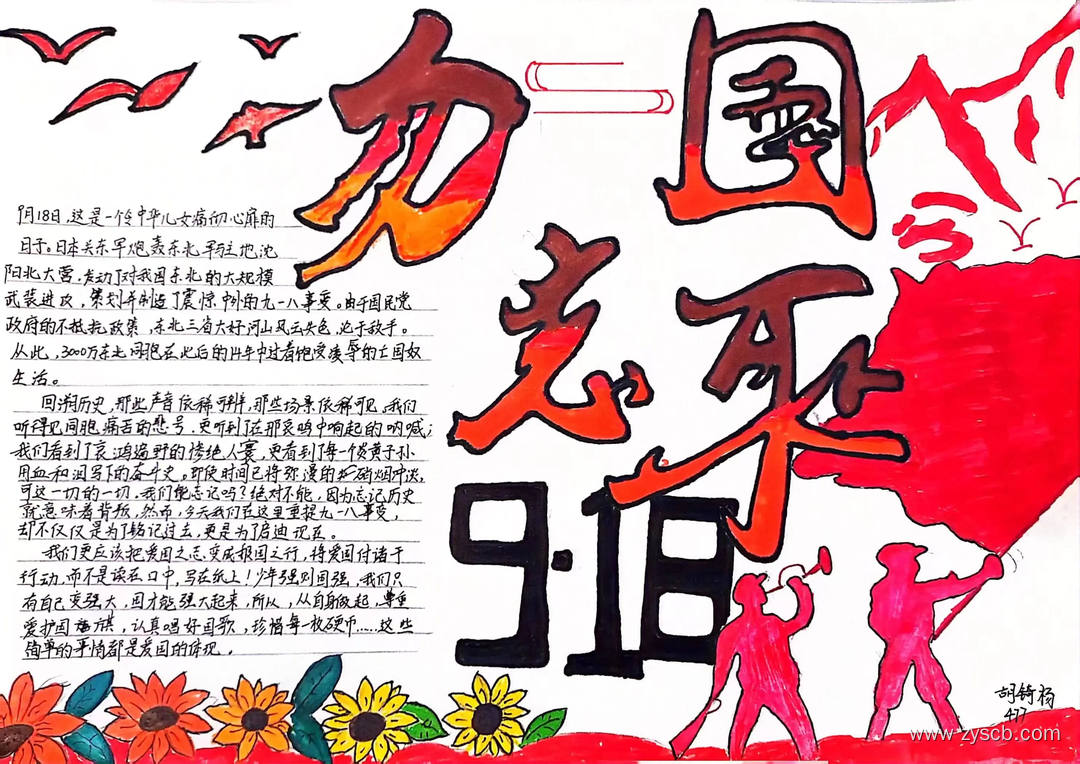 勿忘国耻
9·18
9月18日,这是一个令中华儿女痛彻心扉的
日子。日本关东军炮轰东北军驻地沈
阳北大营,发动了对我国东北的大规模
武装进攻,策划并制造了震惊中外的九一八事变。由于国民党
政府的不抵抗政策,东北三省大好河山风云失色,沦于敌手。
从此,3000万东北同胞在此后的14年中过着饱受凌辱的亡国奴
生活。
回溯历史,那些声音依稀可辨,那些场景依稀可见,我们
听得见同胞痛苦的悲号,更听到了在那哀鸣中响起的呐喊;
我们看到了哀鸿遍野的惨绝人寰,更看到了每一个炎黄子孙
用血和泪写下的奋斗史。即使时间已将弥漫的硝烟冲淡,
可这一切的一切,我们能忘记吗?绝对不能,因为忘记历史
就意味着背叛,然而,今天我们在这里重提九一八事变,
却不仅仅是为了铭记过去,更是为了启迪现在。
我们更应该把爱国之志变成报国之行,将爱国付诸于
行动,而不是读在口中,写在纸上!少年强则国强,我们只
有自己变强大,国才能强大起来,所以,从自身做起,尊重
爱护国旗,认真唱好国歌,珍惜每一枚硬币……这些
简单的事情都是爱国的体现。
胡锜杨
477
www.zyscb.com